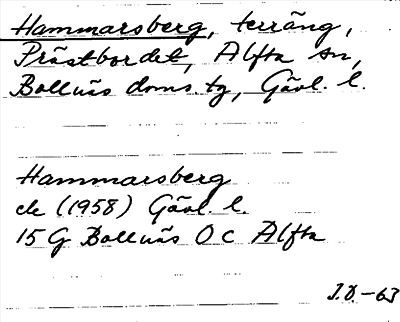 Hammarsberg, terräng,
Prästbordet, Alfta sn,
Bollnäs doms.tg, Gävl. l.
Hammarsberg
ek (1958) Gävl. l.
15 G Bollnäs 0 c Alfta
J.Ö.-63